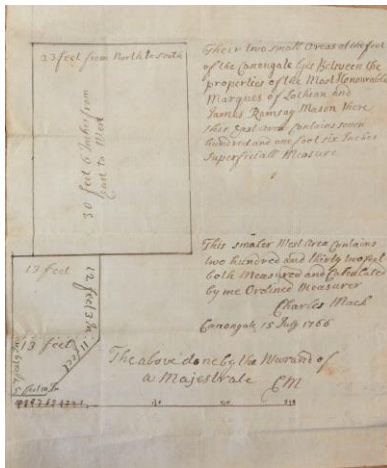 23 feet from North to South
30 feet 6 Inches from
East to West
Their two small Areas at the foot
of the Canongate lyes Between the
properties of the Most Honourable
Marques of Lothian and
James Ramsay Mason there
this East area Contains seven
hundred and one foot six Inches
Superficiall Measure
This smaler West Area Contains
two hundred and thirty two
both Measured and Calculated
by me Ordined Measurer
Charles Mack
Canongate, 15 July 1766
13 feet
12 feet 3 In
13 feet
11 feet
The above done by the Warrand of
a Majestrate CM